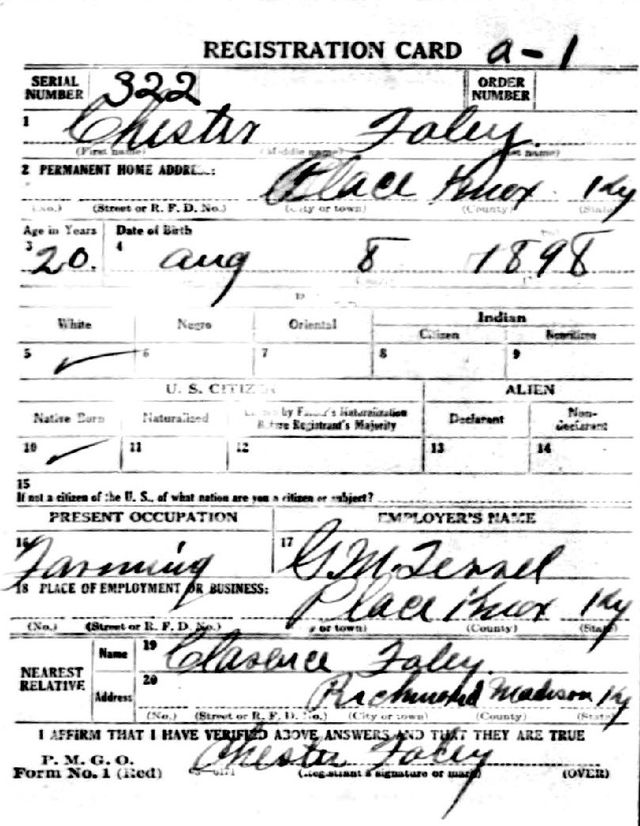 REGISTRATION CARD a-1
SERIAL NUMBER 322 ORDER NUMBER
1 Chester Foley.
(First name) (Middle name) (Last name)
2 PERMANENT HOME ADDRESS:
Place Knox Ky
(No.) (Street or R. F. D. No.) (City or town) (County) (State)
Age in Years Date of Birth
3 20. 4 Aug 8 1898
White Negro Oriental Indian
Citizen Noncitizen
5 ✓ 6 7 8 9
U. S. CITIZEN ALIEN
Native Born Naturalized by Father's Naturalization Before Registrant's Majority Declarant Non-declarant
10 ✓ 11 12 13 14
15
If not a citizen of the U. S., of what nation are you a citizen or subject?
PRESENT OCCUPATION EMPLOYER'S NAME
16 Farming 17 G. M.
18 PLACE OF EMPLOYMENT OR BUSINESS:
Place Knox Ky
(No.) (Street or R. F. D. No.) (City or town) (County) (State)
NEAREST RELATIVE Name 19 Clarence Foley.
Address 20 Richmond Madison Ky
(No.) (Street or R. F. D. No.) (City or town) (County) (State)
I AFFIRM THAT I HAVE VERIFIED ABOVE ANSWERS AND THAT THEY ARE TRUE
P. M. G. O.
Form No. 1 (Red) Chester Foley
(Registrant's signature or mark) (OVER)